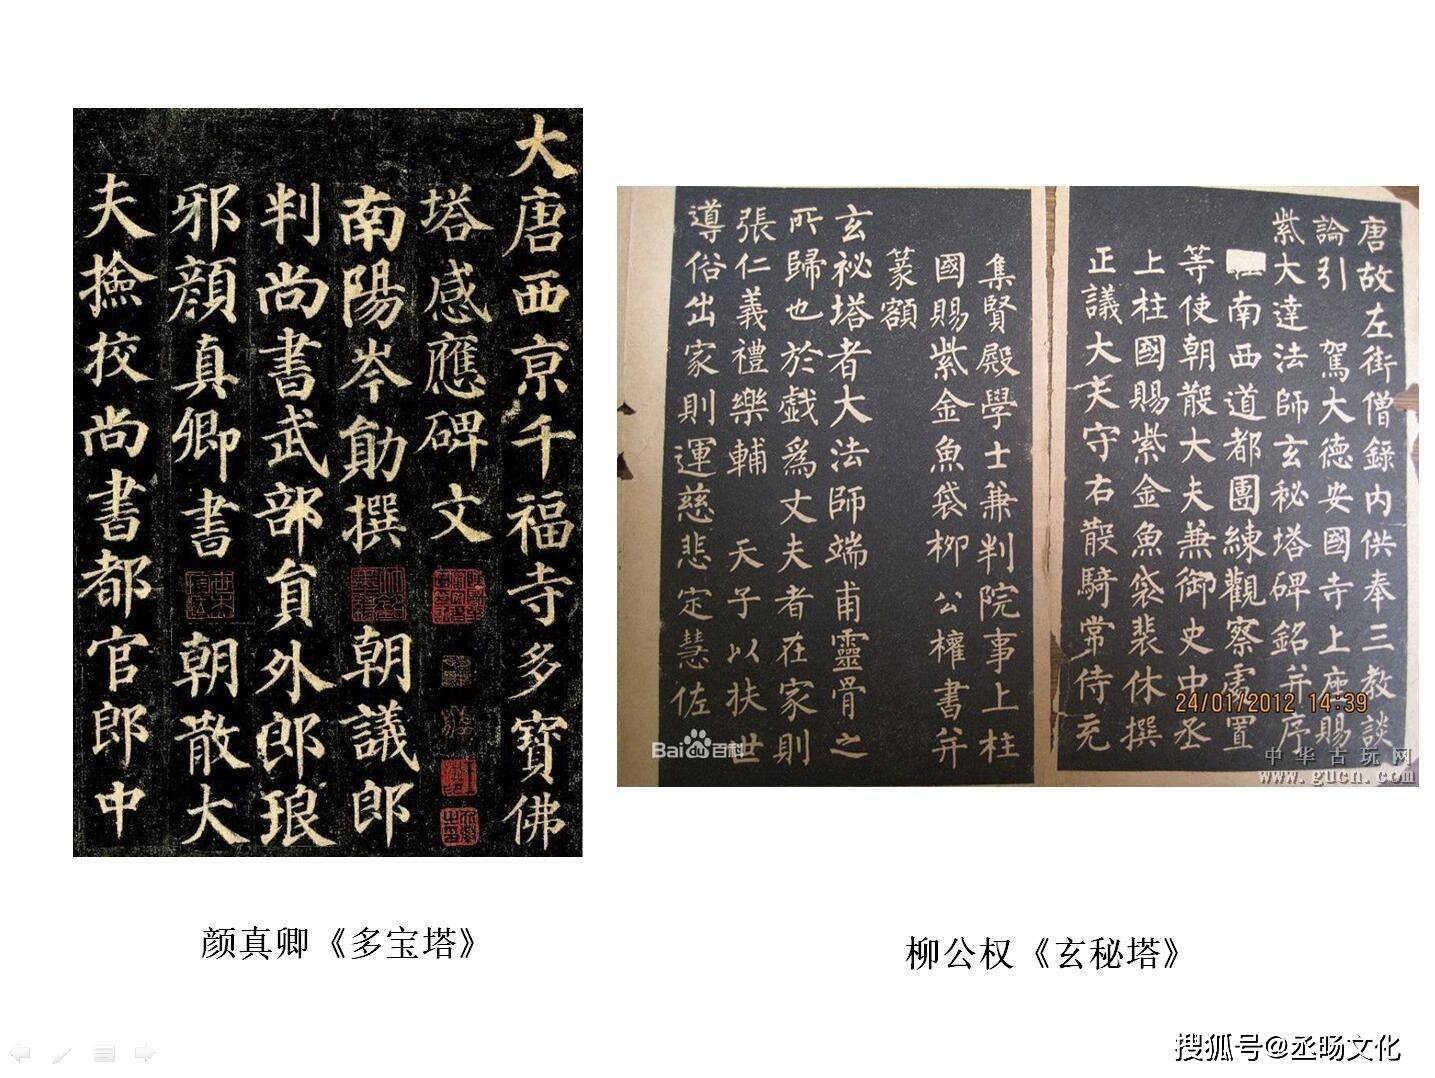 大唐西京千福寺多寶佛
塔感應碑文
南陽岑勛撰 朝議郎
判尚書武部員外郎琅
邪顏真卿書 朝散大
夫撿挍尚書都官郎中
唐故左街僧錄內供奉三教談
論引 駕大德安國寺上座賜
紫大達法師玄秘塔碑銘并序
南西道都團練觀察處置
等使朝散大夫兼御史中丞
上柱國賜紫金魚袋裴休撰
正議大夫守右散騎常侍充
集賢殿學士兼判院事上柱
國賜紫金魚袋柳公權書并
篆額
玄祕塔者大法師端甫靈骨之
所歸也於戲爲丈夫者在家則
張仁義禮樂輔 天子以扶世
導俗出家則運慈悲定慧佐
24/01/2012 14:39
Baidu百科
中华古玩网
www.gucn.com
颜真卿《多宝塔》
柳公权《玄秘塔》
搜狐号@丞旸文化